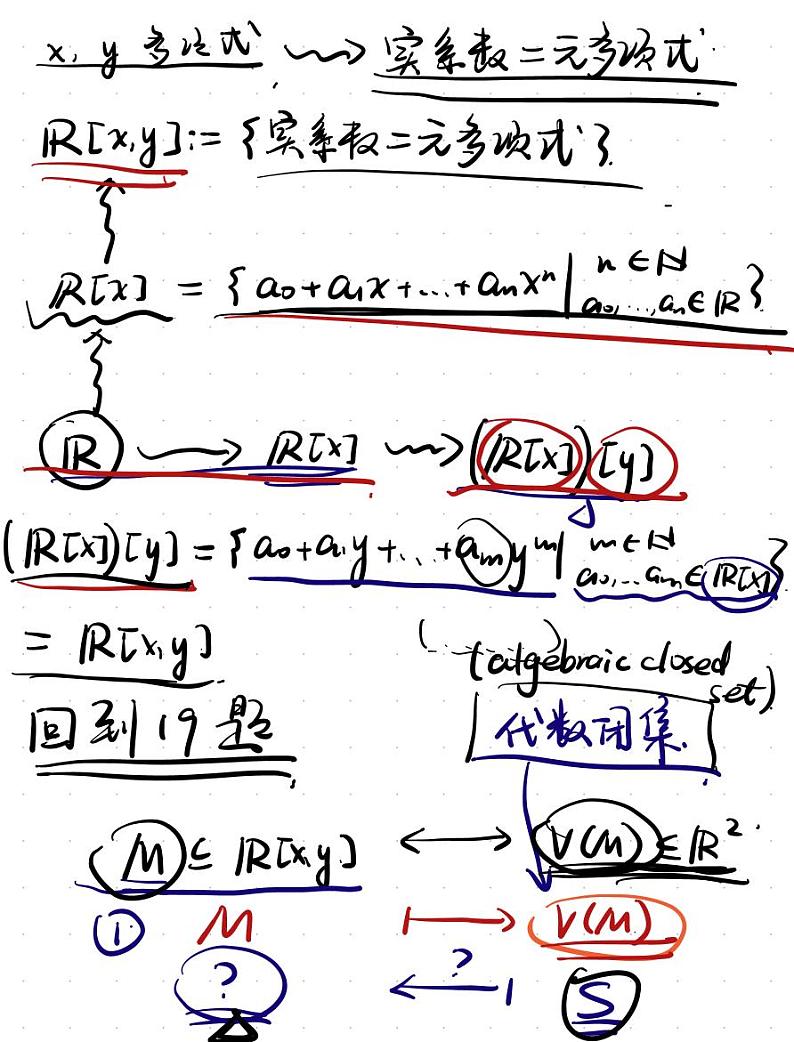 x, y 多项式 ⇝ 实系数二元多项式
ℝ[x,y] := {实系数二元多项式}.
ℝ[x] = {a₀+a₁x+...+aₙxⁿ | n∈ℕ a₀,...,aₙ∈ℝ}
ℝ ⟶ ℝ[x] ⇝ (ℝ[x])[y]
(ℝ[x])[y] = {a₀+a₁y+...+aₘyᵐ | m∈ℕ a₀,...aₘ∈ℝ[x]}
= ℝ[x,y]
(algebraic closed set)
回到19题
代数闭集
M ⊆ ℝ[x,y] ⟷ V(M) ⊆ ℝ²
① M ⟼ V(M)
? ⟻ ? S